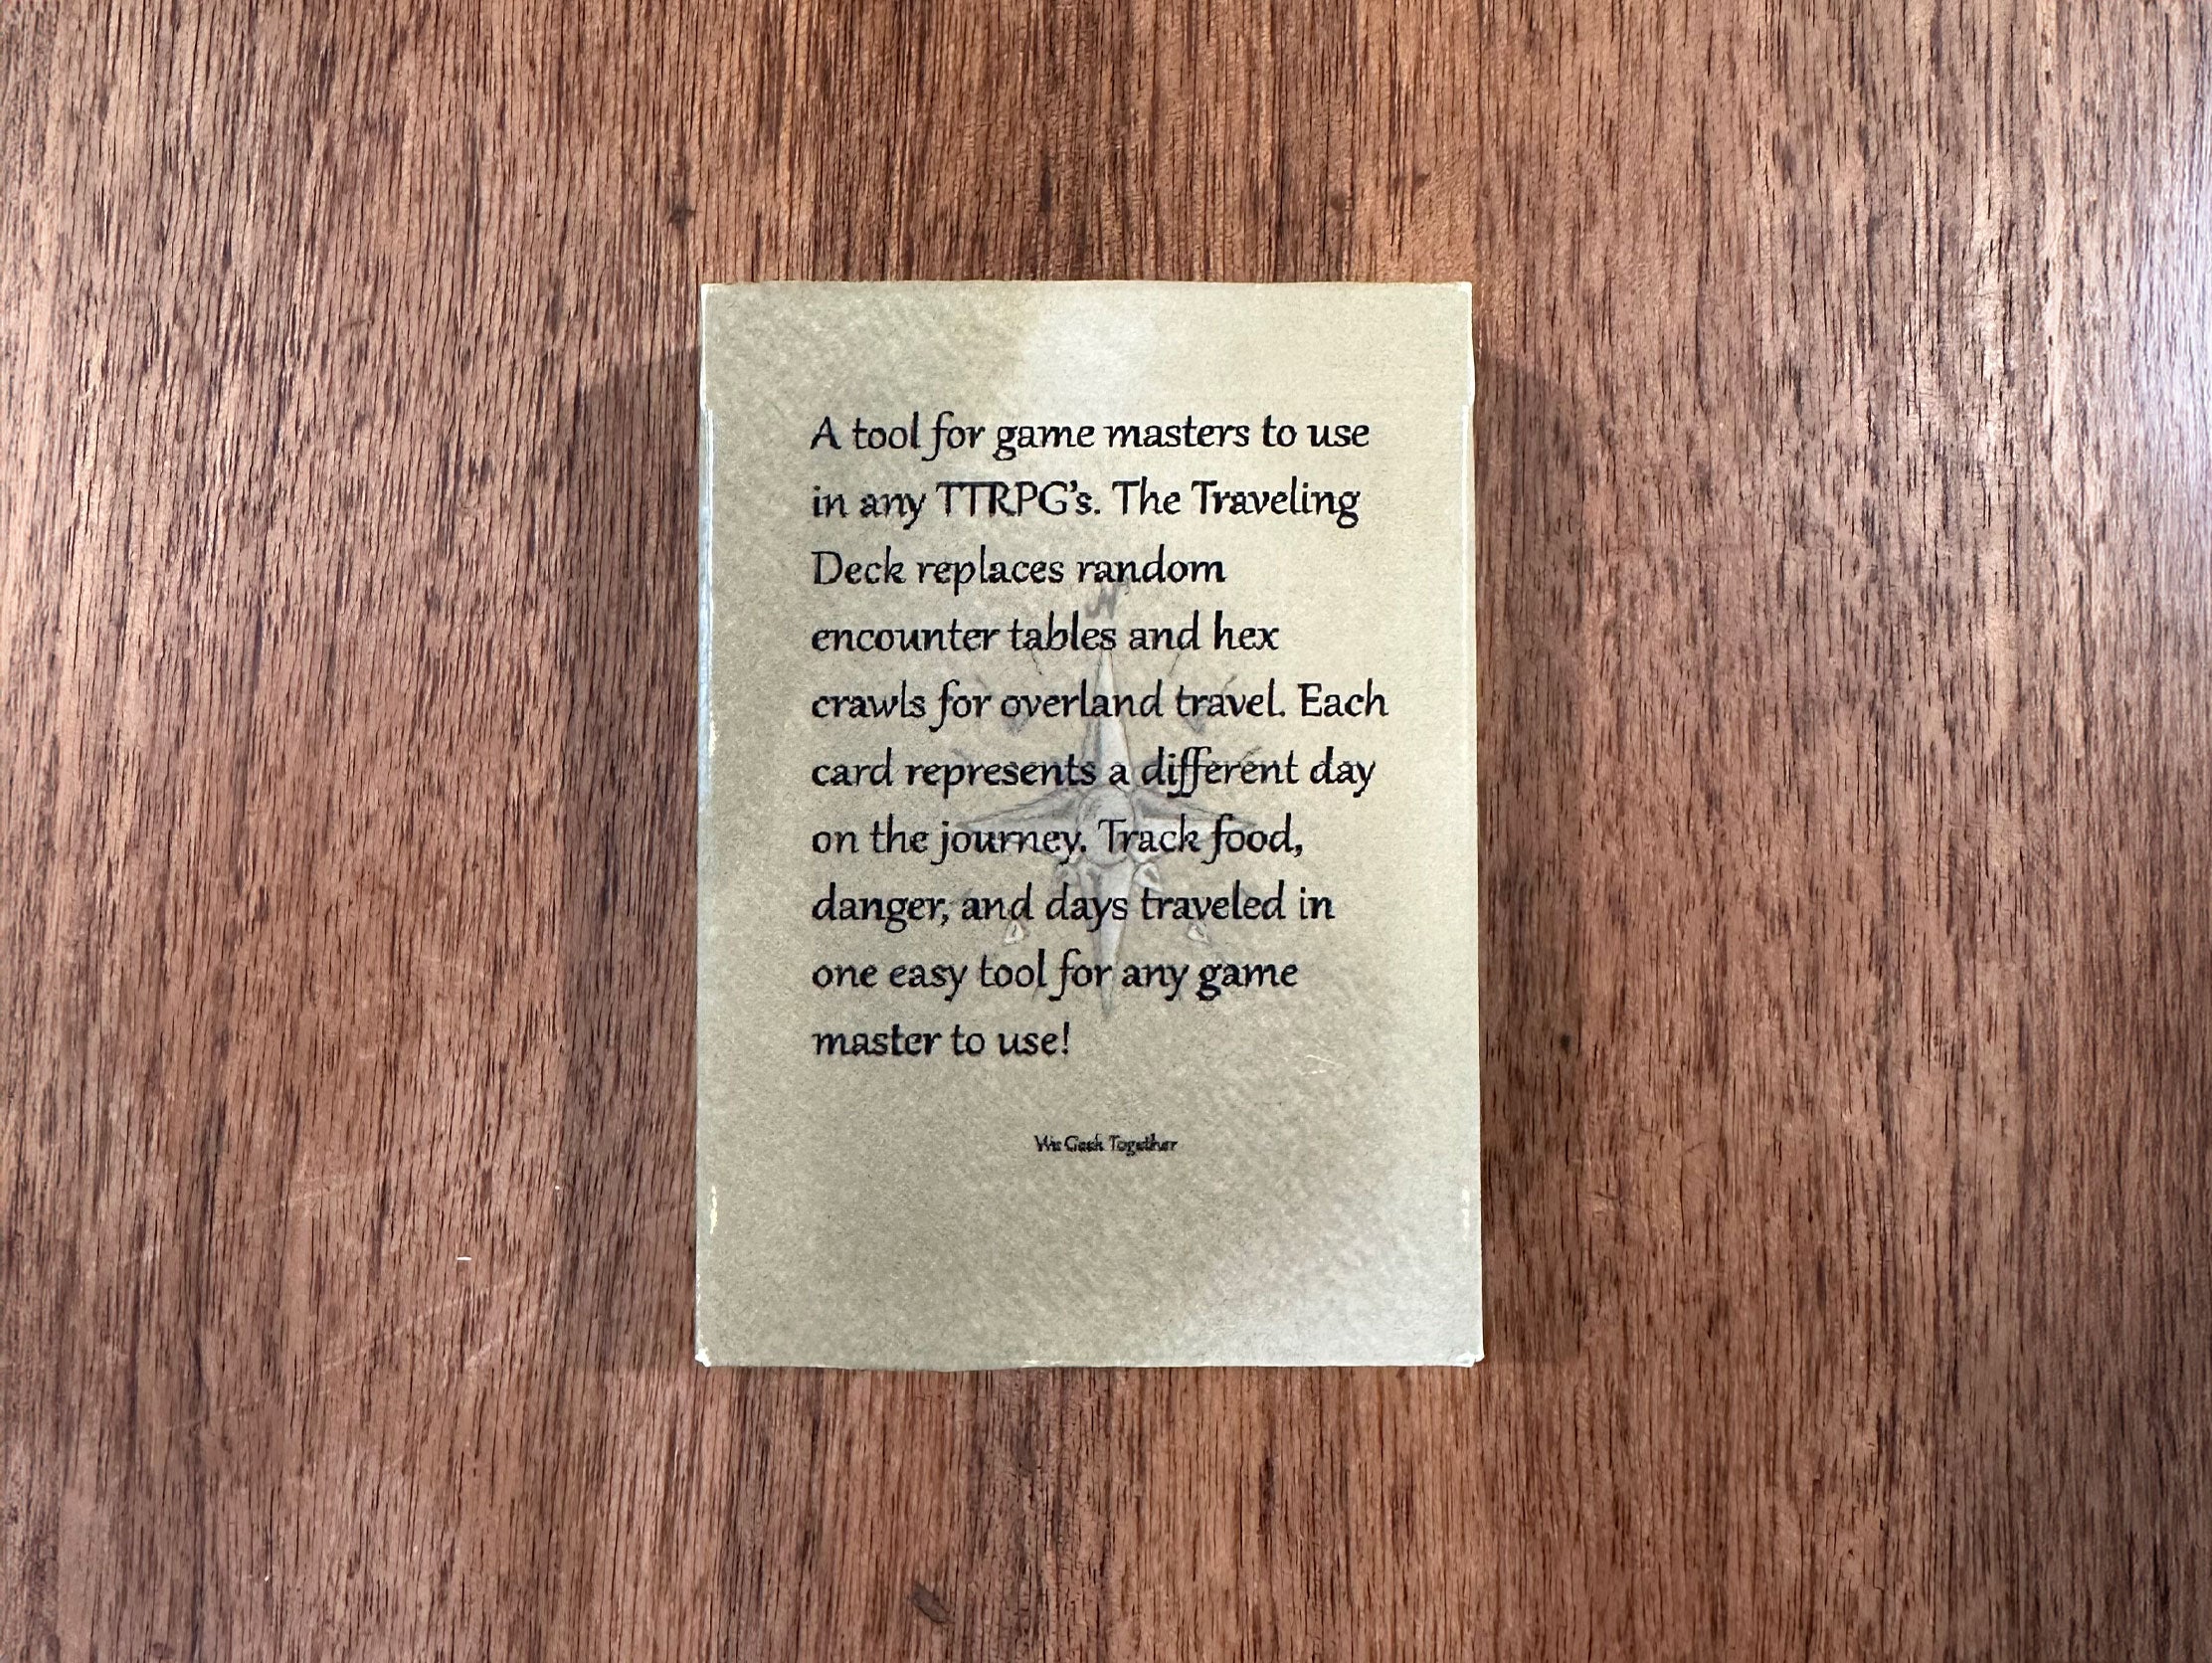 A tool for game masters to use
in any TTRPG's. The Traveling
Deck replaces random
encounter tables and hex
crawls for overland travel. Each
card represents a different day
on the journey. Track food,
danger, and days traveled in
one easy tool for any game
master to use!
We Geek Together